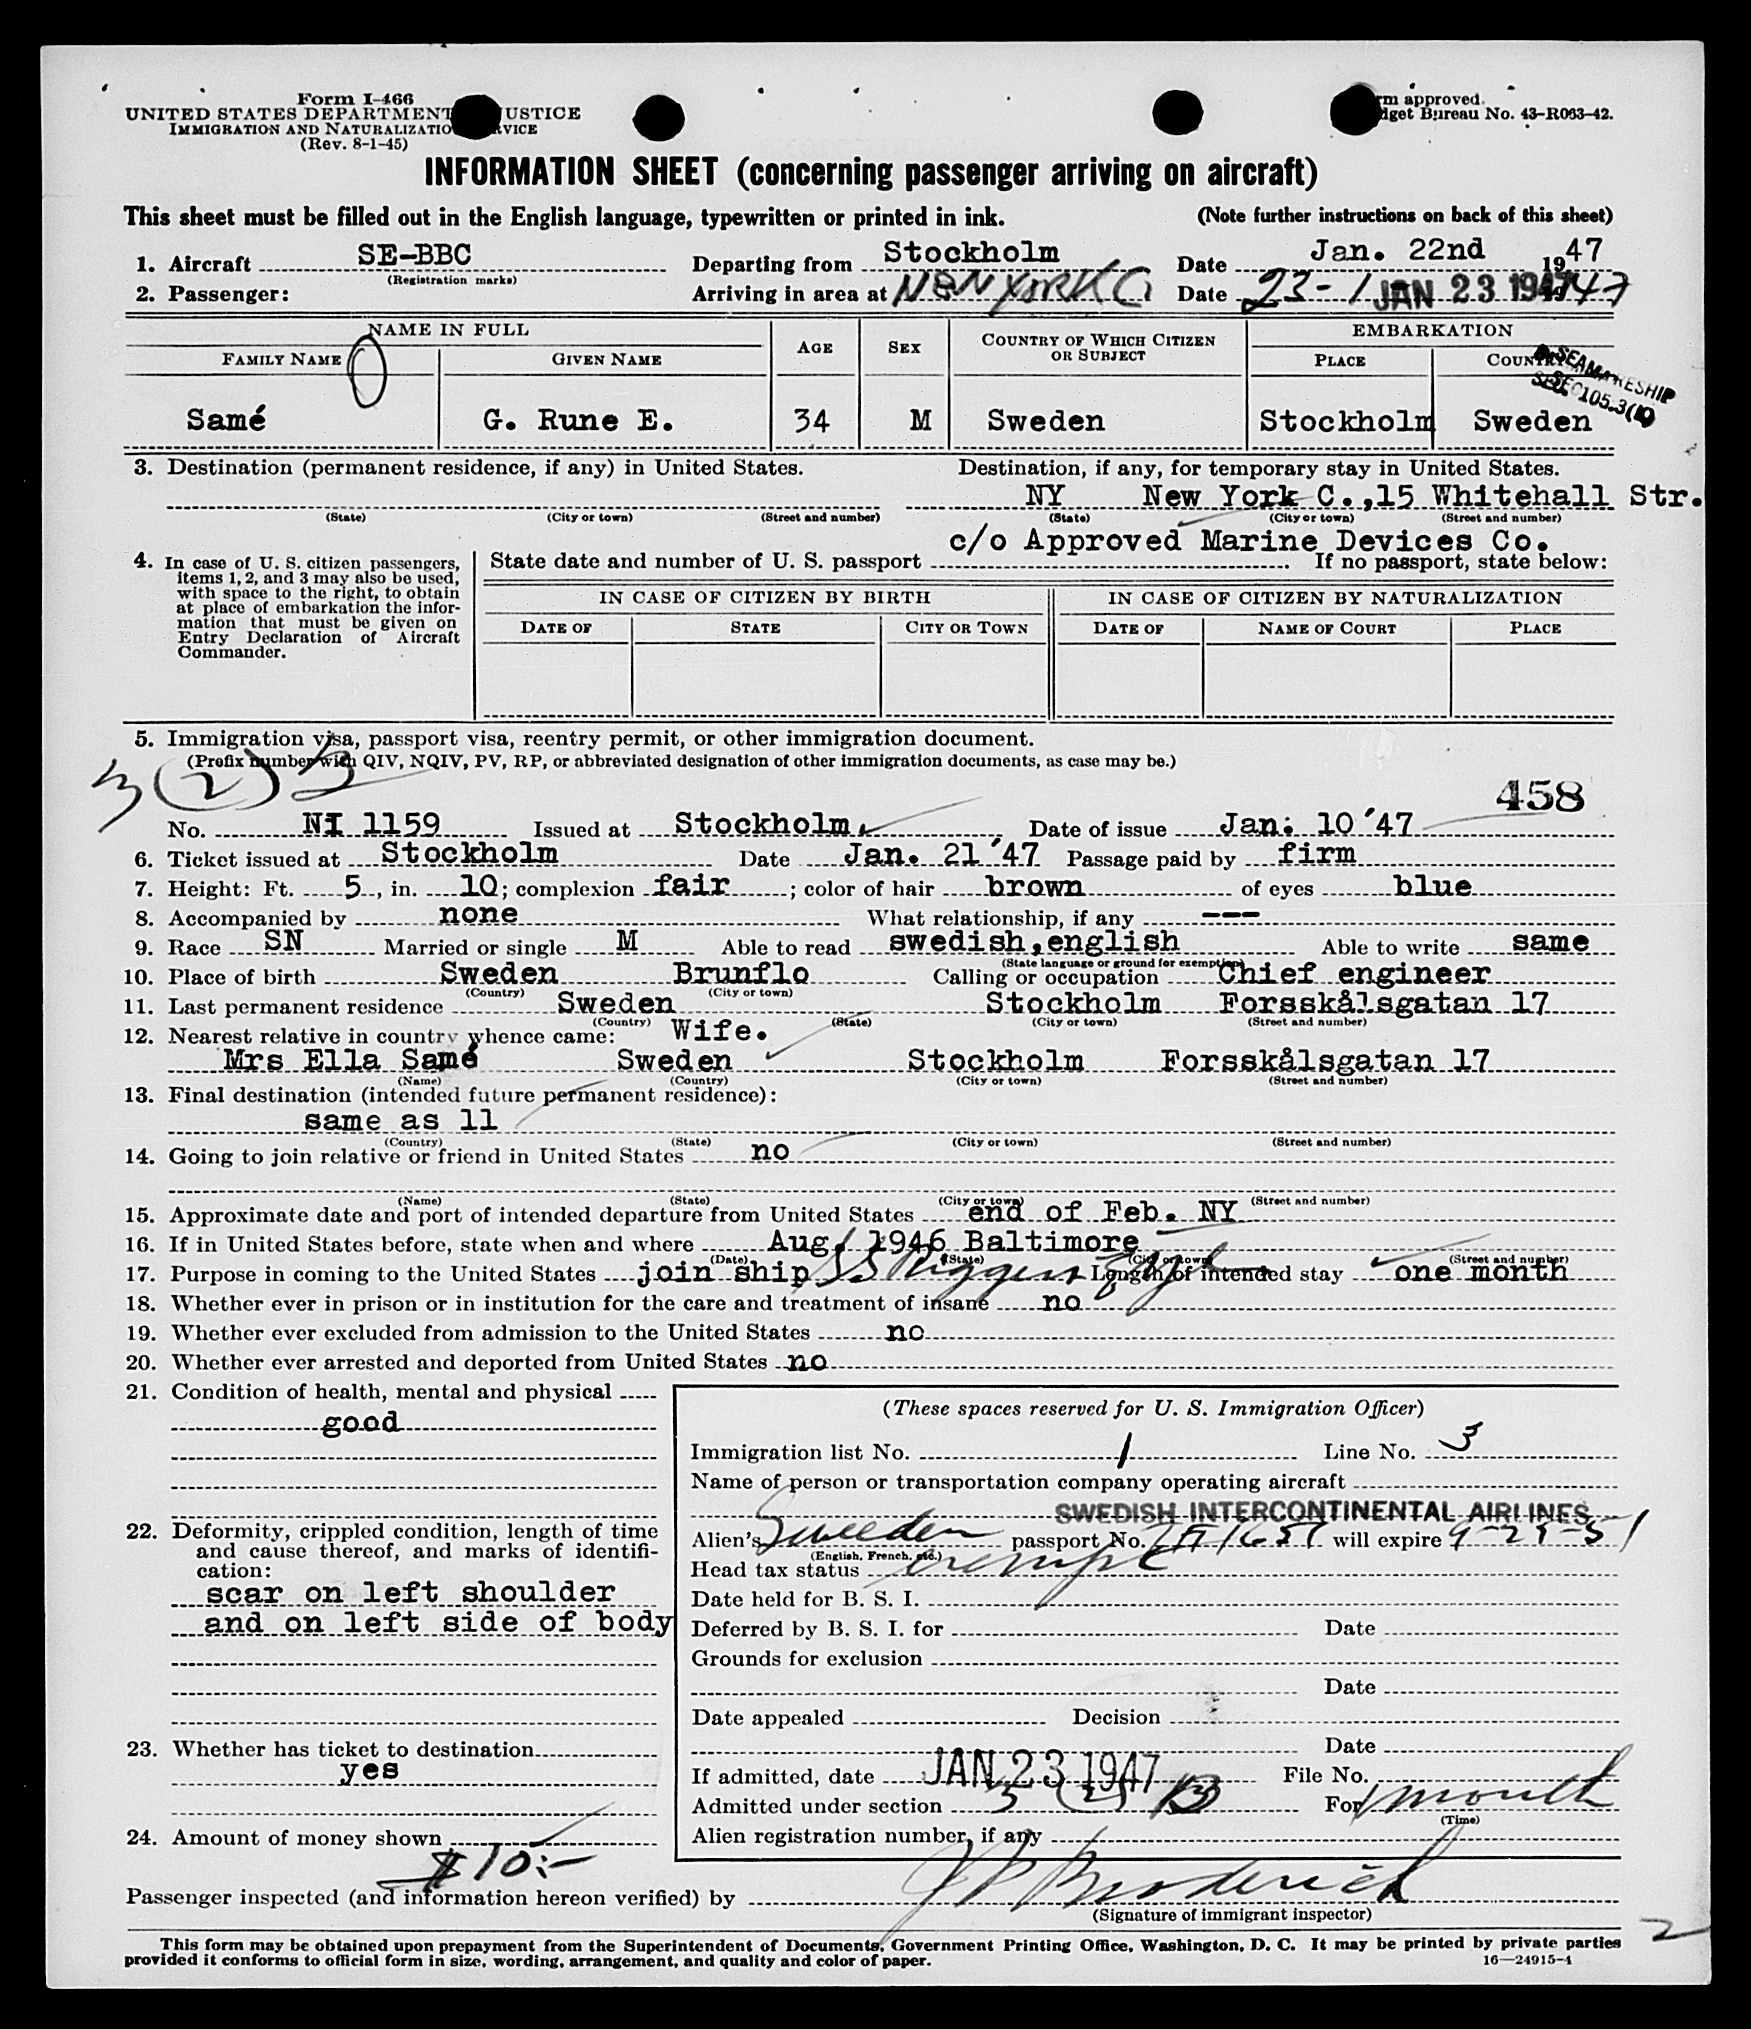 Form I-466
UNITED STATES DEPARTMENT USTICE
IMMIGRATION AND NATURALIZATIO VICE
(Rev. 8-1-45)
rm approved.
dget Bureau No. 43-R063-42.
INFORMATION SHEET (concerning passenger arriving on aircraft)
This sheet must be filled out in the English language, typewritten or printed in ink. (Note further instructions on back of this sheet)
1. Aircraft SE-BBC Departing from Stockholm Date Jan. 22nd 1947
(Registration marks)
2. Passenger: Arriving in area at NEW YORK C Date 23-1 JAN 23 1947 47
NAME IN FULL AGE SEX COUNTRY OF WHICH CITIZEN OR SUBJECT EMBARKATION
FAMILY NAME GIVEN NAME PLACE COUNTRY
SEAMAN RESHIP
SEC 105.3(
Samé G. Rune E. 34 M Sweden Stockholm Sweden
3. Destination (permanent residence, if any) in United States. Destination, if any, for temporary stay in United States.
NY New York C.,15 Whitehall Str.
(State) (City or town) (Street and number) (State) (City or town) (Street and number)
c/o Approved Marine Devices Co.
4. In case of U. S. citizen passengers, items 1, 2, and 3 may also be used, with space to the right, to obtain at place of embarkation the information that must be given on Entry Declaration of Aircraft Commander.
State date and number of U. S. passport . If no passport, state below:
IN CASE OF CITIZEN BY BIRTH IN CASE OF CITIZEN BY NATURALIZATION
DATE OF STATE CITY OR TOWN DATE OF NAME OF COURT PLACE
5. Immigration visa, passport visa, reentry permit, or other immigration document.
(Prefix number with QIV, NQIV, PV, RP, or abbreviated designation of other immigration documents, as case may be.)
3 (2)
458
No. NI 1159 Issued at Stockholm. Date of issue Jan. 10 '47
6. Ticket issued at Stockholm Date Jan. 21 '47 Passage paid by firm
7. Height: Ft. 5, in. 10; complexion fair; color of hair brown of eyes blue
8. Accompanied by none What relationship, if any ---
9. Race SN Married or single M Able to read swedish,english Able to write same
(State language or ground for exemption)
10. Place of birth Sweden Brunflo Calling or occupation Chief engineer
(Country) (City or town)
11. Last permanent residence Sweden Stockholm Forsskålsgatan 17
(Country) (State) (City or town) (Street and number)
12. Nearest relative in country whence came: Wife.
Mrs Ella Samé Sweden Stockholm Forsskålsgatan 17
(Name) (Country) (City or town) (Street and number)
13. Final destination (intended future permanent residence):
same as 11
(Country) (State) (City or town) (Street and number)
14. Going to join relative or friend in United States no
(Name) (State) (City or town) (Street and number)
15. Approximate date and port of intended departure from United States end of Feb. NY
16. If in United States before, state when and where Aug. 1946 Baltimore
(Date) (State) (City or town) (Street and number)
17. Purpose in coming to the United States join ship SS Length of intended stay one month
18. Whether ever in prison or in institution for the care and treatment of insane no
19. Whether ever excluded from admission to the United States no
20. Whether ever arrested and deported from United States no
21. Condition of health, mental and physical
good
22. Deformity, crippled condition, length of time and cause thereof, and marks of identification:
scar on left shoulder
and on left side of body
23. Whether has ticket to destination
yes
24. Amount of money shown
$10:-
(These spaces reserved for U. S. Immigration Officer)
Immigration list No. 1 Line No. 3
Name of person or transportation company operating aircraft
SWEDISH INTERCONTINENTAL AIRLINES
Alien's Sweeden passport No. will expire 9-29-51
(English, French, etc.)
Head tax status exempt
Date held for B. S. I.
Deferred by B. S. I. for Date
Grounds for exclusion
Date
Date appealed Decision
Date
If admitted, date JAN 23 1947 File No.
Admitted under section 3 (2) For 1 month
(Time)
Alien registration number, if any
Passenger inspected (and information hereon verified) by J P Broderick
(Signature of immigrant inspector)
2
This form may be obtained upon prepayment from the Superintendent of Documents, Government Printing Office, Washington, D. C. It may be printed by private parties
provided it conforms to official form in size, wording, arrangement, and quality and color of paper. 16—24915-1